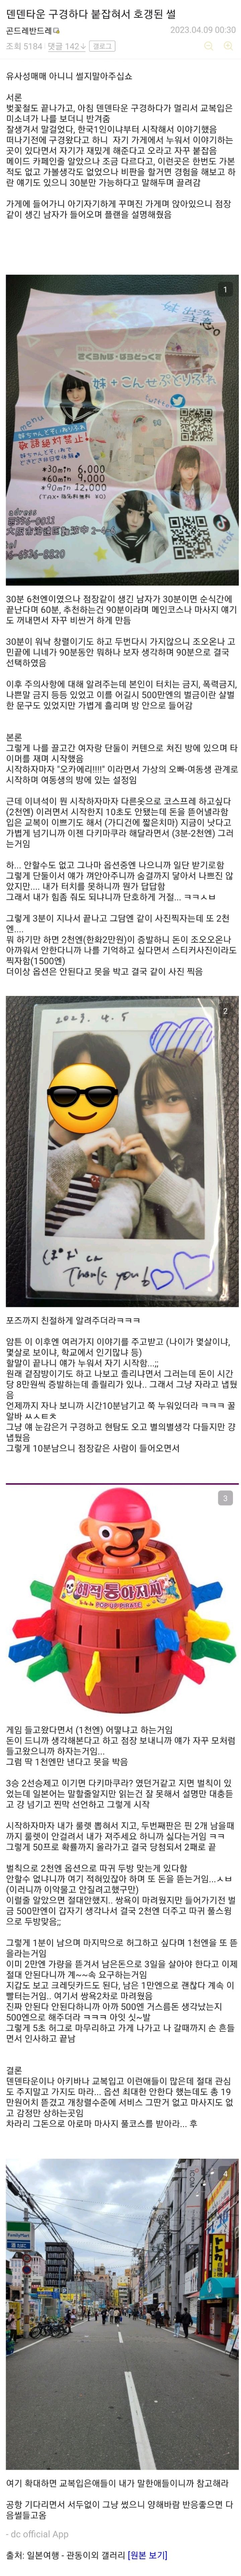 덴덴타운 구경하다 붙잡혀서 호갱된 썰
곤드레반드레
2023.04.09 00:30
조회 5184
댓글 142
갤로그
유사성매매 아니니 썰지말아주십쇼
서론
벚꽃철도 끝나가고, 아침 덴덴타운 구경하다가 멀리서 교복입은
미소녀가 나를 보더니 반겨줌
잘생겨서 말걸었다, 한국1인이냐부터 시작해서 이야기했음
떠나기전에 구경왔다고 하니 자기 가게에서 누워서 이야기하는
곳이 있다면서 자기가 재밌게 해준다고 오라고 자꾸 붙잡음
메이드 카페인줄 알았으나 조금 다르다고, 이런곳은 한번도 가본
적도 없고 가볼생각도 없었으나 비판을 할거면 경험을 해보고 하
란 얘기도 있으니 30분만 가능하다고 말해두며 끌려감
가게에 들어가니 아기자기하게 꾸며진 가게며 앉아있으니 점장
같이 생긴 남자가 들어오며 플랜을 설명해줬음
1
妹+こんせぷとりふれ
敬語絶対禁止!
*30min 6,000
*60min 9,000
30분 6천엔이였으나 점장같이 생긴 남자가 30분이면 순식간에
끝난다며 60분, 추천하는건 90분이라며 메인코스나 마사지 얘기
도 꺼내면서 자꾸 비싼거 하게 만듬
30분이 워낙 창렬이기도 하고 두번다시 가지않으니 조오온나 고
민끝에 니네가 90분동안 뭐하나 보자 생각하며 90분으로 결국
선택하였음
이후 주의사항에 대해 알려주는데 본인이 터치는 금지, 폭력금지,
나쁜말 금지 등등 있었고 이를 어길시 500만엔의 벌금이란 살벌
한 문구도 있었지만 가볍게 흘리며 방 안으로 들어감
본론
그렇게 나를 끌고간 여자랑 단둘이 커텐으로 쳐진 방에 있으며 타
이머를 재며 시작했음
시작하자마자 "오카에리!!!!" 이라면서 가상의 오빠-여동생 관계로
시작하며 여동생의 방에 있는 설정임
근데 이녀석이 뭔 시작하자마자 다른옷으로 코스프레 하고싶다
(2천엔) 이러면서 시작한지 10초도 안됐는데 돈을 뜯어낼라함
입은 교복이 이쁘기도 해서 (가디건에 짧은치마) 지금이 낫다고
가볍게 넘기니까 이젠 다키마쿠라 해달라면서 (3분-2천엔) 그러
는거임
하... 안할수도 없고 그나마 옵션중엔 나으니까 일단 받기로함
그렇게 단둘이서 얘가 껴안아주니까 숨결까지 닿아서 나쁘진 않
았지만.... 내가 터치를 못하니까 뭔가 답답함
그래서 내가 힘좀 줘도 되냐니까 단호하게 거절... ㅋㅋㅅㅂ
그렇게 3분이 지나서 끝나고 그담엔 같이 사진찍자는데 또 2천
엔....
뭐 하기만 하면 2천엔(한화2만원)이 증발하니 돈이 조오오온나
아까워서 안한다니까 나를 기억하고 싶다면서 스티커사진이라도
찍자함(1500엔)
더이상 옵션은 안된다고 못을 박고 결국 같이 사진 찍음
2
2023.4.5
Thank you!
포즈까지 친절하게 알려주더라ㅋㅋㅋ
암튼 이 이후엔 여러가지 이야기를 주고받고 (나이가 몇살이냐,
몇살로 보이냐, 학교에서 인기많냐 등)
할말이 끝나니 얘가 누워서 자기 시작함...;;
원래 곁잠방이기도 하고 나보고 졸리냐면서 그러는데 돈이 시간
당 8만원씩 증발하는데 졸릴리가 있나.. 그래서 그냥 자라고 냅뒀
음
언제까지 자나 보니까 시간10분남기고 쭉 누워있더라 ㅋㅋㅋ 꿀
알바 ㅆㅅㅌㅊ
그냥 얘 눈감은거 구경하고 현탐도 오고 별의별생각 다들지만 걍
냅뒀음
그렇게 10분남으니 점장같은 사람이 들어오면서
3
해적 통아저씨
POP-UP PIRATE!
게임 들고왔다면서 (1천엔) 어떻냐고 하는거임
돈이 드니까 생각해본다고 하고 점장 보내니까 얘가 자꾸 모처럼
들고왔으니까 하자는거임...
그럼 딱 1천엔만 낸다고 못을 박음
3승 2선승제고 이기면 다키마쿠라? 였던거같고 지면 벌칙이 있
었는데 일본어는 말할줄알지만 읽는건 잘 못해서 설명만 대충듣
고 걍 넘기고 찐막 선언하고 그렇게 시작
시작하자마자 내가 룰렛 뽑혀서 지고, 두번째판은 핀 2개 남을때
까지 룰렛이 안걸려서 내가 져주세요 하니까 싫다는거임 ㅋㅋ
그렇게 50프로 확률까지 올라가고 결국 당첨되서 2패로 끝
벌칙으로 2천엔 옵션으로 따귀 두방 맞는게 있다함
안할수 없냐니까 여기 적혀있잖아 하며 또 돈을 뜯는거임...ㅅㅂ
(이러니까 이악물고 안질려고했구만)
이럴줄 알았으면 절대안했지.. 쌍욕이 마려웠지만 들어가기전 벌
금 500만엔이 갑자기 생각나서 결국 2천엔 더주고 따귀 풀스윙
으로 두방맞음;;
그렇게 1분이 남으며 마지막으로 허그하고 싶다며 1천엔을 또 뜯
을라는거임
이미 2만엔 가량을 뜯겨서 남은돈으로 3일을 살아야 한다고 이제
절대 안된다니까 계~~속 요구하는거임
지갑도 보고 크레딧카드도 된다, 남은 1만엔으로 괜찮다 계속 이
빨터는거임.. 여기서 쌍욕2차로 마려웠음
진짜 안된다 안된다하니까 아까 500엔 거스름돈 생각났는지
500엔으로 해주더라 ㅋㅋㅋ 아잇 싯~발
그렇게 5초 허그로 마무리하고 가게 나가고 나 갈때까지 손 흔들
면서 인사하고 끝남
결론
덴덴타운이나 아키바나 교복입고 이런애들이 많은데 절대 관심
도 주지말고 가지도 마라... 옵션 최대한 안한다 했는데도 총 19
만원어치 뜯겼고 개창렬수준에 서비스 그딴거 없고 마사지도 없
고 감정만 상하는곳임
차라리 그돈으로 아로마 마사지 풀코스를 받아라... 후
4
FamilyMart
여기 확대하면 교복입은애들이 내가 말한애들이니까 참고해라
공항 기다리면서 서두없이 그냥 썼으니 양해바람 반응좋으면 다
음썰들고옴
- dc official App
출처: 일본여행 - 관동이외 갤러리 [원본 보기]